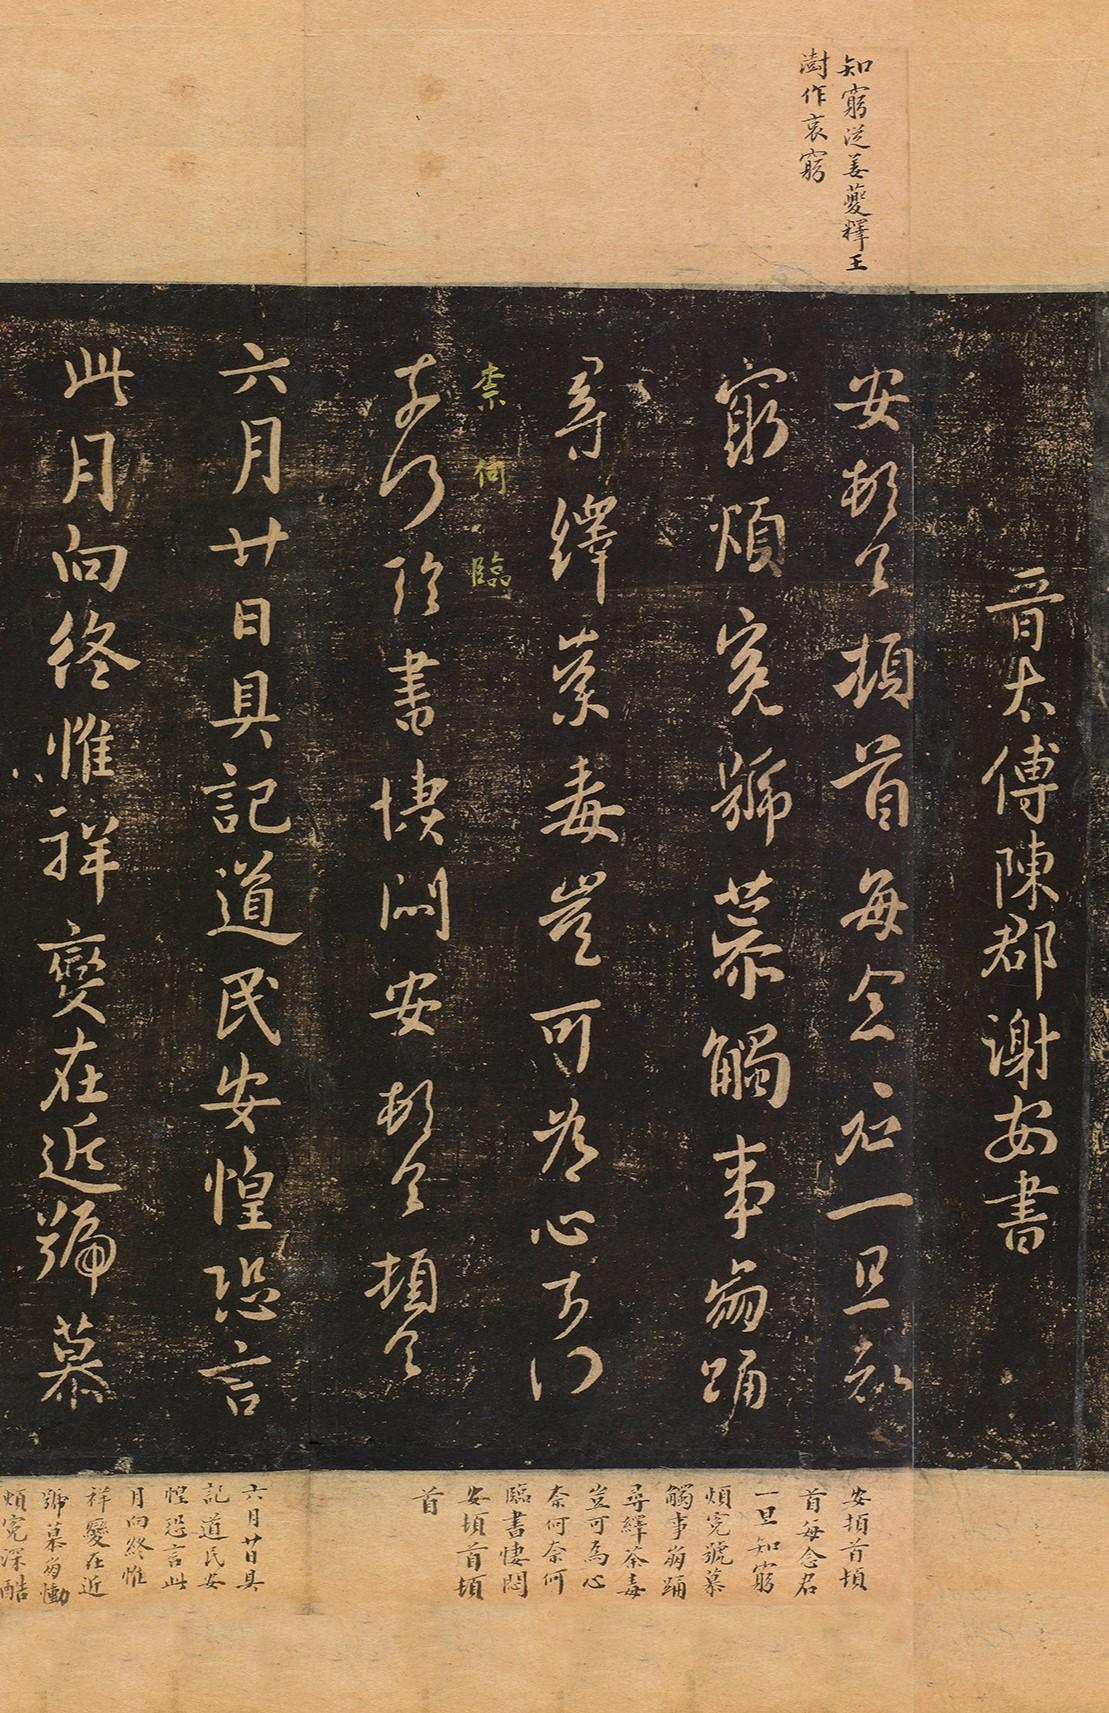 知窮從姜夔釋王
澍作哀窮
晉太傅陳郡謝安書
安頓首頓首每念君一旦知
窮煩寃號慕觸事崩踊
尋繹荼毒豈可為心奈何
奈何臨書悽悶安頓首頓首
奈何臨
六月廿日具記道民安惶恐言
此月向終惟祥變在近號慕
安頓首頓
首每念君
一旦知窮
煩寃號慕
觸事崩踊
尋繹荼毒
豈可為心
奈何奈何
臨書悽悶
安頓首頓
首
六月廿日具
記道民安
惶恐言此
月向終惟
祥變在近
號慕崩慟
煩寃深酷